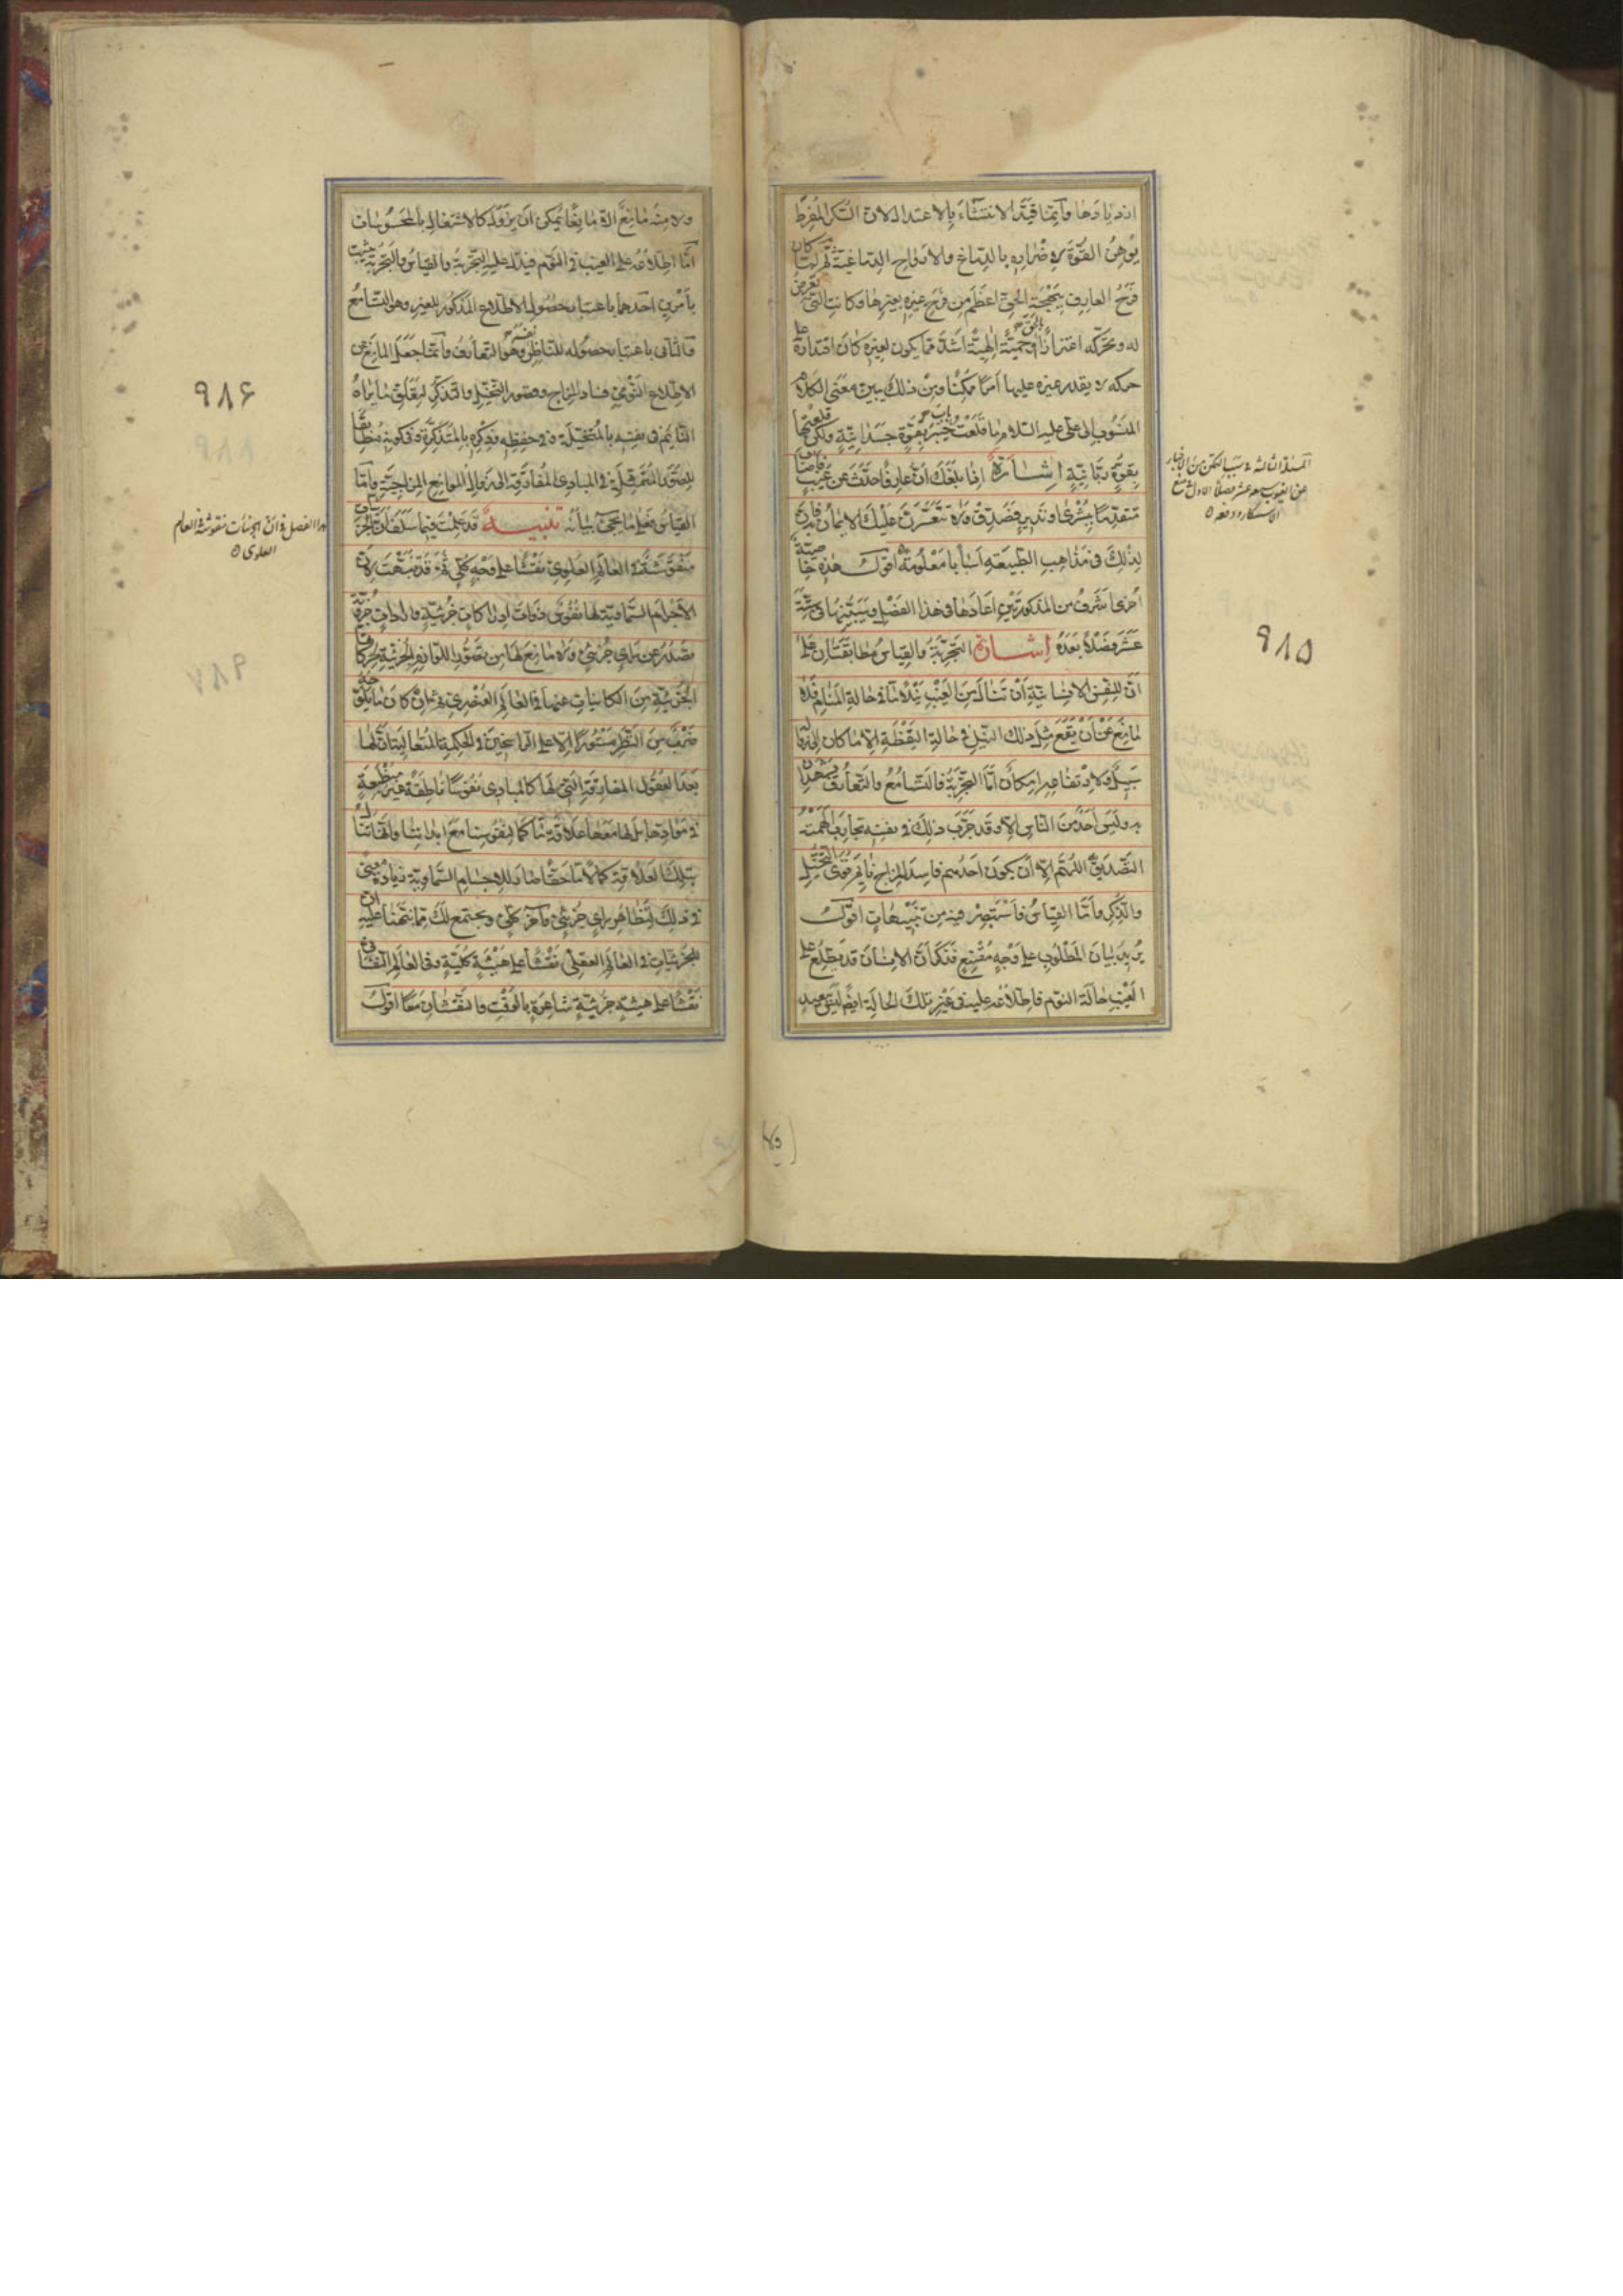 ازديادها وانما قيد الانتشاء بالاعتدال لان السكر المفرط
يوهن القوة لاضراره بالدماغ والارواح الدماغية ثم لما كان
فرح العارف ببهجة الحق اعظم من فرح غيره بغيرها وكانت التي تعرض
له وتحركه اعتزازا بالحق وحمية الهية اشد مما يكون لغيره كان اقتداره على
حركة لا يقدر غيره عليها امرا ممكنا ومن ذلك يتبين معنى الكلام
المنسوب الى على عليه السلام ما قلعت باب خيبر بقوة جسدانية ولكن قلعتها
بقوة ربانية اشارة اذا بلغك ان عارفا حدث عن غيب فاصاب
متقدما ببشرى او نذير فصدق ولا يتعسرن عليك الايمان به فان
لذلك فى مذاهب الطبيعة اسبابا معلومة اقول هذه خاصية
اخرى اشرف من المذكورتين اعادها فى هذا الفصل وسيبينها فى ستة
عشر فصلا بعده اشارة التجربة والقياس مطابقتان على
ان للنفس الانسانية ان تنال من الغيب نيلا ما فى حالة المنام فلا
مانع عن ان يقع مثل ذلك النيل فى حالة اليقظة الا ما كان الى زواله
سبيل ولارتفاعه امكان اما التجربة فالتسامع والتعارف يشهدان
به وليس احد من الناس الا وقد جرب ذلك فى نفسه تجارب الهمته
التصديق اللهم الا ان يكون احدهم فاسد المزاج نايم قوى التخيل
والذكر واما القياس فاستبصر فيه من تنبيهات اقول
يريد بيان المطلوب على وجه مقنع فذكر ان الانسان قد يطلع على
الغيب حالة النوم فاطلاعه عليه فى غير تلك الحالة ايضا ليس ببعيد
المسئلة الثالثة فى سبب التمكن من الاخبار
عن الغيوب
٩٨٥
ولا منه مانع اللهم الا مانعا يمكن ان يزول كالاشتغال بالمحسوسات
اما اطلاعه على الغيب فى النوم فيدل عليه التجربة والقياس والتجربة يثبت
بامرين احدهما باعتبار حصول الاطلاع المذكور للغير وهو التسامع
والثانى باعتبار حصوله للناظر نفسه وهو التعارف وانما جعل المانع عن
الاطلاع النومى فساد المزاج وقصور التخيل والتذكر لتعلق ما يراه
النايم فى نفسه بالمتخيلة وفى حفظه وذكره بالمتذكرة وفى كونه مطابقا
للصور المتمثلة فى المبادى المفارقة الى زوال الموانع المزاجية واما
القياس فعلى ما يجىء بيانه تنبيه قد علمت فيما سلف ان الجزئيات
منقوشة فى العالم العلوى نقشا على وجه كلى ثم قد نبهت لان
الاجرام السماوية لها نفوس ذوات ادراكات جزئية وارادات جزئية
تصدر عن راى جزئى ولا مانع لها من تصور اللوازم الجزئية لحركاتها
الجزئية من الكاينات عنها فى العالم العنصرى ثم ان كان ما يلوحه
ضرب من النظر مستورا الا على الراسخين فى الحكمة المتعالية ان لها
بعد العقول المفارقة التى هى لها كالمبادى نفوسا ناطقة غير منطبعة
فى موادها بل لها معها علاقة ما كما لنفوسنا مع ابداننا وانها تنال
بتلك العلاقة كمالا ما حقا صار للاجسام السماوية زيادة معنى
فى ذلك لتظاهر راى جزئى وآخر كلى ويجتمع لك مما نبهنا عليه ان
للجزئيات فى العالم العقلى نقشا على هيئة كلية وفى العالم النفسانى
نقشا على هيئة جزئية شاعرة بالوقت والنقشان معا اقول
٩٨۶
هذا الفصل فى ان الجزئيات منقوشة فى العالم
العلوى